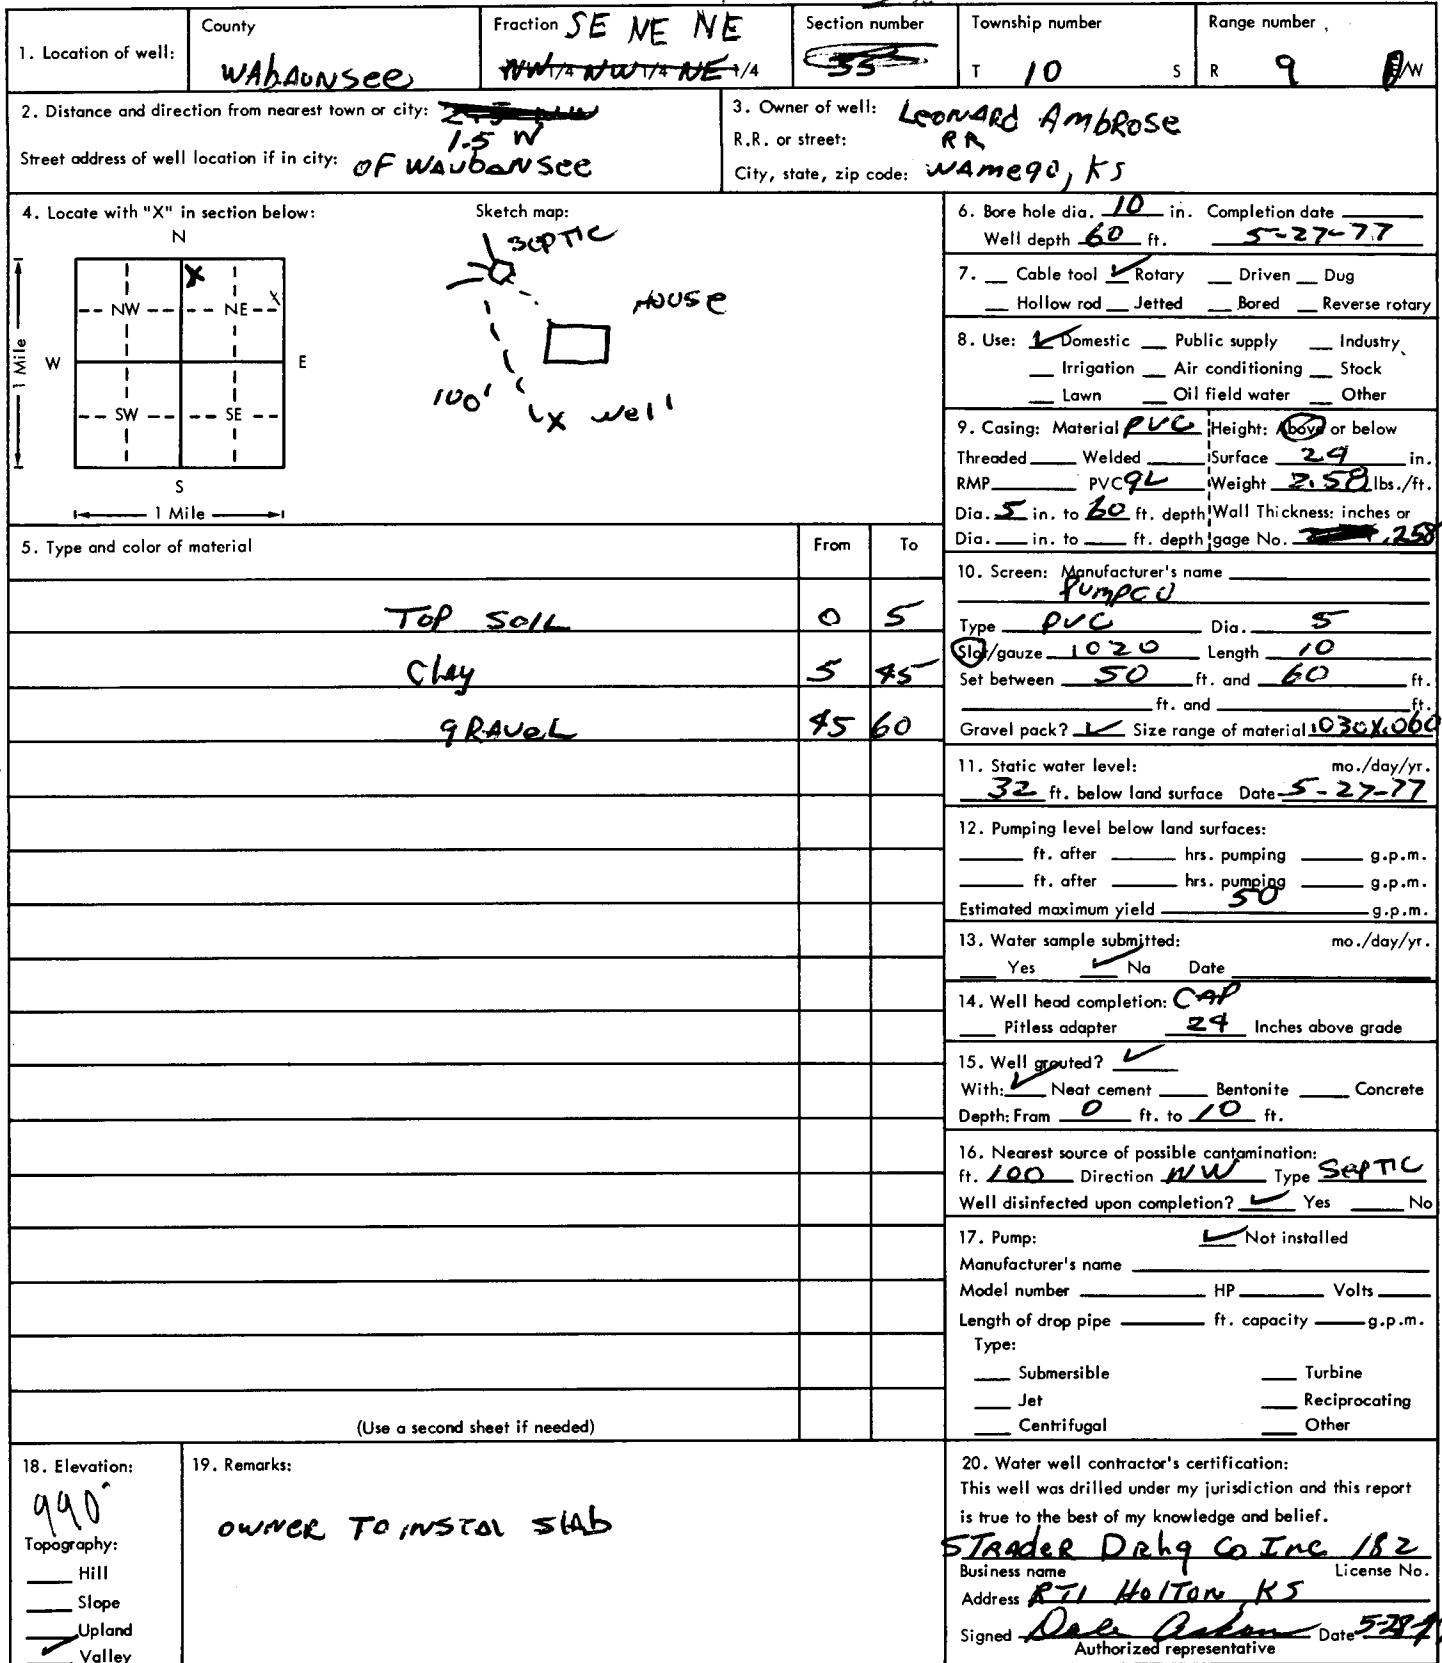 1. Location of well:
County
WAbAUNSee
Fraction SE NE NE
NW 1/4 NW 1/4 NE 1/4
Section number
Township number
T 10 S
Range number
R 9 /W
2. Distance and direction from nearest town or city:
1.5 W
Street address of well location if in city: OF WAUbANSee
3. Owner of well: LeoNARd AmbRose
R.R. or street: RR
City, state, zip code: WAmego, KS
4. Locate with "X" in section below:
N
X
X
NW NE
W E
SW SE
S
1 Mile
1 Mile
Sketch map:
SEPTIC
HOUSe
100'
X well
5. Type and color of material From To
Top SOIL 0 5
Clay 5 45
gRAveL 45 60
(Use a second sheet if needed)
6. Bore hole dia. 10 in. Completion date
Well depth 60 ft. 5-27-77
7. Cable tool ✓ Rotary Driven Dug
Hollow rod Jetted Bored Reverse rotary
8. Use: ✓ Domestic Public supply Industry
Irrigation Air conditioning Stock
Lawn Oil field water Other
9. Casing: Material PVC Height: Above or below
Threaded Welded Surface 24 in.
RMP PVC gL Weight 2.58 lbs./ft.
Dia. 5 in. to 60 ft. depth Wall Thickness: inches or
Dia. in. to ft. depth gage No. .258
10. Screen: Manufacturer's name
PUMPCO
Type PVC Dia. 5
Slot/gauze .020 Length 10
Set between 50 ft. and 60 ft.
ft. and ft.
Gravel pack? ✓ Size range of material .030X.060
11. Static water level: mo./day/yr.
32 ft. below land surface Date 5-27-77
12. Pumping level below land surfaces:
ft. after hrs. pumping g.p.m.
ft. after hrs. pumping g.p.m.
Estimated maximum yield 50 g.p.m.
13. Water sample submitted: mo./day/yr.
Yes ✓ No Date
14. Well head completion: CAP
Pitless adapter 24 Inches above grade
15. Well grouted? ✓
With: ✓ Neat cement Bentonite Concrete
Depth: From 0 ft. to 10 ft.
16. Nearest source of possible contamination:
ft. 100 Direction NW Type SepTIC
Well disinfected upon completion? ✓ Yes No
17. Pump: ✓ Not installed
Manufacturer's name
Model number HP Volts
Length of drop pipe ft. capacity g.p.m.
Type:
Submersible Turbine
Jet Reciprocating
Centrifugal Other
18. Elevation:
990'
Topography:
Hill
Slope
Upland
✓ Valley
19. Remarks:
OWNER TO INSTAL SlAb
20. Water well contractor's certification:
This well was drilled under my jurisdiction and this report
is true to the best of my knowledge and belief.
STRAdeR DRlg Co Inc 182
Business name License No.
Address RT1 HolTon KS
Signed Dale Date
Authorized representative